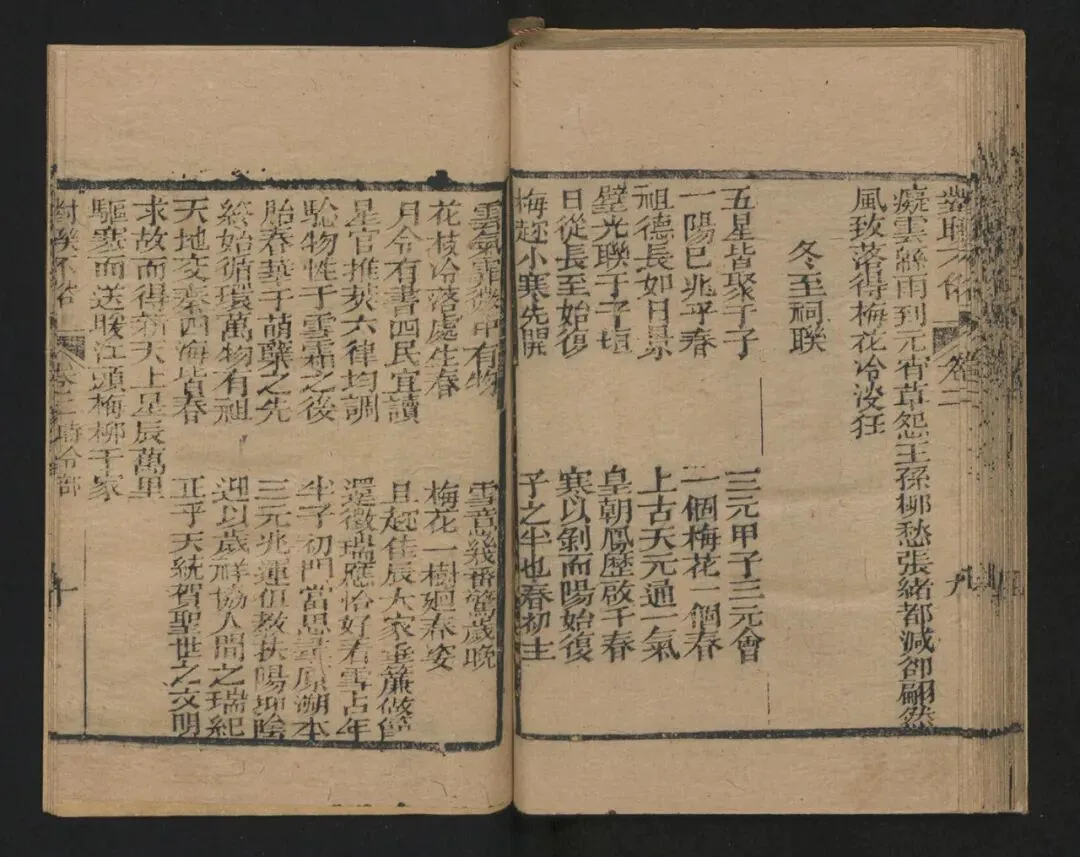 對聯不俗 卷二 九
癡雲絲雨到元宵草怨王孫柳愁張緒都減卻翩然
風致落得梅花冷淡狂
冬至祠聯
五星皆聚于子 三元甲子三元會
一陽已兆乎春 一個梅花一個春
祖德長如日景 上古天元通一氣
璧光聯于子垣 皇朝鳳歷啟千春
日從長至始復 寒以剝而陽始復
梅趂小寒先開 子之半也春初生
雲氣中有物 雪意幾番驚歲晚
花枝冷落處生春 梅花一樹廻春姿
月令有書四民宜讀 且趂佳辰大家垂簾做節
星官推策六律均調 還徵瑞應恰好看雪占年
驗物性于雲霜之後 坐子初門當思率原溯本
胎春華于萌蘖之先 三元兆運值茲扶陽抑陰
終始循環萬物有祖 迎以歲祥協人間之瑞紀
天地交泰四海皆春 正乎天統賀聖世之文明
求故而得新天上星辰萬里
驅寒而送暖江頭梅柳千家
對聯不俗 卷二時令部 十